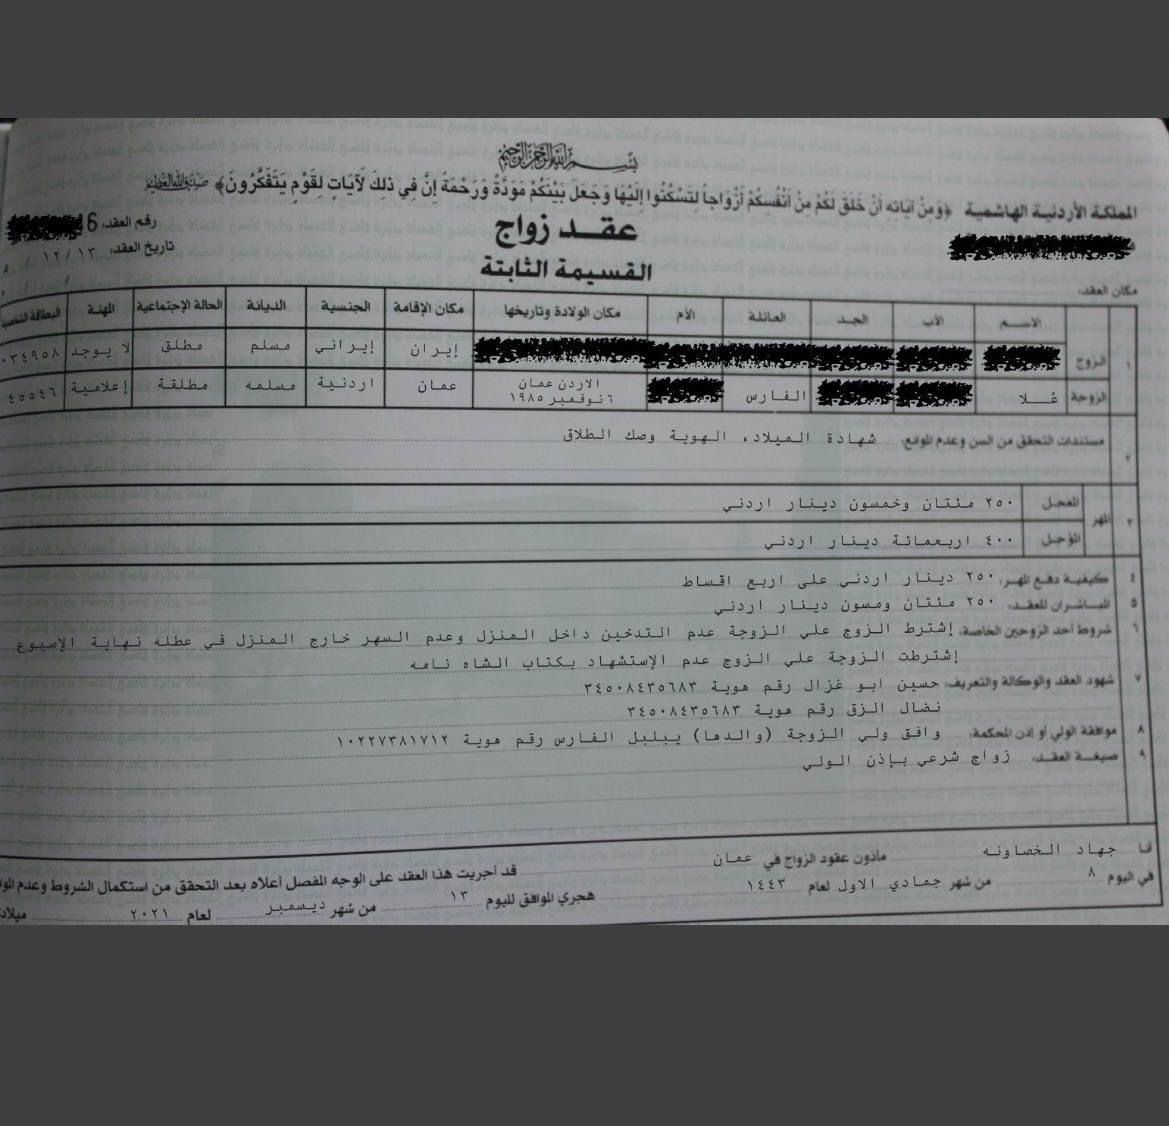 بسم الله الرحمن الرحيم
المملكة الأردنية الهاشمية ﴿وَمِنْ آيَاتِهِ أَنْ خَلَقَ لَكُمْ مِنْ أَنْفُسِكُمْ أَزْوَاجاً لِتَسْكُنُوا إِلَيْهَا وَجَعَلَ بَيْنَكُمْ مَوَدَّةً وَرَحْمَةً إِنَّ فِي ذَلِكَ لَآيَاتٍ لِقَوْمٍ يَتَفَكَّرُونَ﴾ صدق الله العظيم
عقد زواج
رقم العقد: 6
القسيمة الثابتة
تاريخ العقد: ١٣ / ١٢ /
مكان العقد:
الاسم الأب الجد العائلة الأم مكان الولادة وتاريخها مكان الإقامة الجنسية الديانة الحالة الإجتماعية المهنة البطاقة
١ الزوج إيران إيراني مسلم مطلق لا يوجد ٠٣٤٩٥٨
الزوجة عُلا الفارس الاردن عمان ٦ نوفمبر ١٩٨٥ عمان اردنية مسلمه مطلقة إعلامية ٤٥٥٤٦
٢ مستندات التحقق من السن وعدم الموانع: شهادة الميلاد، الهوية وصك الطلاق
٣ المهر المعجل ٢٥٠ مئتان وخمسون دينار اردني
المؤجل ٤٠٠ اربعمائة دينار اردني
٤ كيفية دفع المهر: ٢٥٠ دينار اردني على اربع اقساط
٥ المباشران للعقد: ٢٥٠ مئتان ومسون دينار اردني
٦ شروط أحد الزوجين الخاصة: إشترط الزوج علي الزوجة عدم التدخين داخل المنزل وعدم السهر خارج المنزل في عطله نهاية الإسبوع
إشترطت الزوجة علي الزوج عدم الإستشهاد بكتاب الشاه نامه
٧ شهود العقد والوكالة والتعريف: حسين ابو غزال رقم هوية ٣٤٥٠٨٤٣٥٦٨٣
نضال الزق رقم هوية ٣٤٥٠٨٤٣٥٦٨٣
٨ موافقة الولي أو إذن المحكمة: وافق ولي الزوجة (والدها) يبلبل الفارس رقم هوية ١٠٢٢٧٣٨١٧١٢
٩ صيغة العقد: زواج شرعي بإذن الولي
أنا جهاد الخصاونه مأذون عقود الزواج في عمان قد اجريت هذا العقد على الوجه المفصل أعلاه بعد التحقق من استكمال الشروط وعدم
في اليوم ٨ من شهر جمادي الاول لعام ١٤٤٣ هجري الموافق لليوم ١٣ من شهر ديسمبر لعام ٢٠٢١